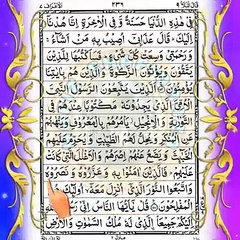 فِیْ هٰذِهِ الدُّنْیَا حَسَنَةً وَّ فِی الْاٰخِرَةِ اِنَّا هُدْنَاۤ
اِلَیْكَ ؕ قَالَ عَذَابِیْۤ اُصِیْبُ بِهٖ مَنْ اَشَآءُ ۚ
وَ رَحْمَتِیْ وَسِعَتْ كُلَّ شَیْءٍ ؕ فَسَاَكْتُبُهَا لِلَّذِیْنَ
یَتَّقُوْنَ وَ یُؤْتُوْنَ الزَّكٰوةَ وَ الَّذِیْنَ هُمْ بِاٰیٰتِنَا
یُؤْمِنُوْنَ ۚ اَلَّذِیْنَ یَتَّبِعُوْنَ الرَّسُوْلَ النَّبِیَّ
الْاُمِّیَّ الَّذِیْ یَجِدُوْنَهٗ مَكْتُوْبًا عِنْدَهُمْ فِی
التَّوْرٰىةِ وَ الْاِنْجِیْلِ ؗ یَاْمُرُهُمْ بِالْمَعْرُوْفِ وَ یَنْهٰىهُمْ
عَنِ الْمُنْكَرِ وَ یُحِلُّ لَهُمُ الطَّیِّبٰتِ وَ یُحَرِّمُ عَلَیْهِمُ
الْخَبٰٓىِٕثَ وَ یَضَعُ عَنْهُمْ اِصْرَهُمْ وَ الْاَغْلٰلَ الَّتِیْ كَانَتْ
عَلَیْهِمْ ؕ فَالَّذِیْنَ اٰمَنُوْا بِهٖ وَ عَزَّرُوْهُ وَ نَصَرُوْهُ
وَ اتَّبَعُوا النُّوْرَ الَّذِیْۤ اُنْزِلَ مَعَهٗۤ ۙ اُولٰٓىِٕكَ هُمُ
الْمُفْلِحُوْنَ قُلْ یٰۤاَیُّهَا النَّاسُ اِنِّیْ رَسُوْلُ اللّٰهِ
اِلَیْكُمْ جَمِیْعَا الَّذِیْ لَهٗ مُلْكُ السَّمٰوٰتِ وَ الْاَرْضِ